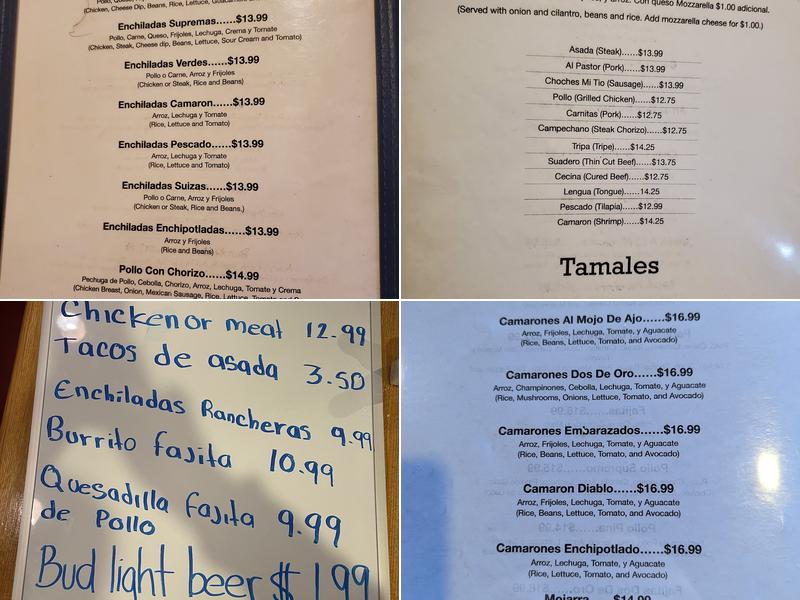 (Chicken, Cheese Dip, Beans, Rice, Lettuce,
Enchiladas Supremas......$13.99
Pollo, Carne, Queso, Frijoles, Lechuga, Crema y Tomate
(Chicken, Steak, Cheese dip, Beans, Lettuce, Sour Cream and Tomato)
Enchiladas Verdes......$13.99
Pollo o Carne, Arroz y Frijoles
(Chicken or Steak, Rice and Beans)
Enchiladas Camaron......$13.99
Arroz, Lechuga y Tomate
(Rice, Lettuce and Tomato)
Enchiladas Pescado......$13.99
Arroz, Lechuga y Tomate
(Rice, Lettuce and Tomato)
Enchiladas Suizas......$13.99
Pollo o Carne, Arroz y Frijoles
(Chicken or Steak, Rice and Beans.)
Enchiladas Enchipotladas......$13.99
Arroz y Frijoles
(Rice and Beans)
Pollo Con Chorizo......$14.99
Pechuga de Pollo, Cebolla, Chorizo, Arroz, Lechuga, Tomate y Crema
(Chicken Breast, Onion, Mexican Sausage, Rice, Lettuce,
Con queso Mozzarella $1.00 adicional.
(Served with onion and cilantro, beans and rice. Add mozzarella cheese for $1.00.)
Asada (Steak)......$13.99
Al Pastor (Pork)......$13.99
Choches Mi Tio (Sausage)......$13.99
Pollo (Grilled Chicken)......$12.75
Carnitas (Pork)......$12.75
Campechano (Steak Chorizo)......$12.75
Tripa (Tripe)......$14.25
Suadero (Thin Cut Beef)......$13.75
Cecina (Cured Beef)......$12.75
Lengua (Tongue)......14.25
Pescado (Tilapia)......$12.99
Camaron (Shrimp)......$14.25
Tamales
Chicken or meat 12.99
Tacos de asada 3.50
Enchiladas Rancheras 9.99
Burrito fajita 10.99
Quesadilla fajita 9.99
de Pollo
Bud light beer $ 1 99
Camarones Al Mojo De Ajo......$16.99
Arroz, Frijoles, Lechuga, Tomate, y Aguacate
(Rice, Beans, Lettuce, Tomato, and Avocado)
Camarones Dos De Oro......$16.99
Arroz, Champinones, Cebolla, Lechuga, Tomate, y Aguacate
(Rice, Mushrooms, Onions, Lettuce, Tomato, and Avocado)
Camarones Embarazados......$16.99
Arroz, Frijoles, Lechuga, Tomate, y Aguacate
(Rice, Beans, Lettuce, Tomato, and Avocado)
Camaron Diablo......$16.99
Arroz, Frijoles, Lechuga, Tomate, y Aguacate
(Rice, Beans, Lettuce, Tomato, and Avocado)
Camarones Enchipotlado......$16.99
Arroz, Lechuga, Tomate, y Aguacate
(Rice, Lettuce, Tomato, and Avocado)
Mojarra......$14.99